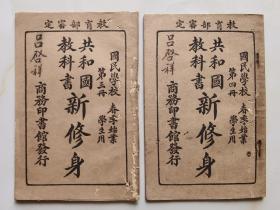 教育部審定
國民學校 春季始業
第三冊 學生用
共和國
教科書 新修身
呂啓祥
商務印書館發行
教育部審定
國民學校 春季始業
第四冊 學生用
共和國
教科書 新修身
呂啓祥
商務印書館發行